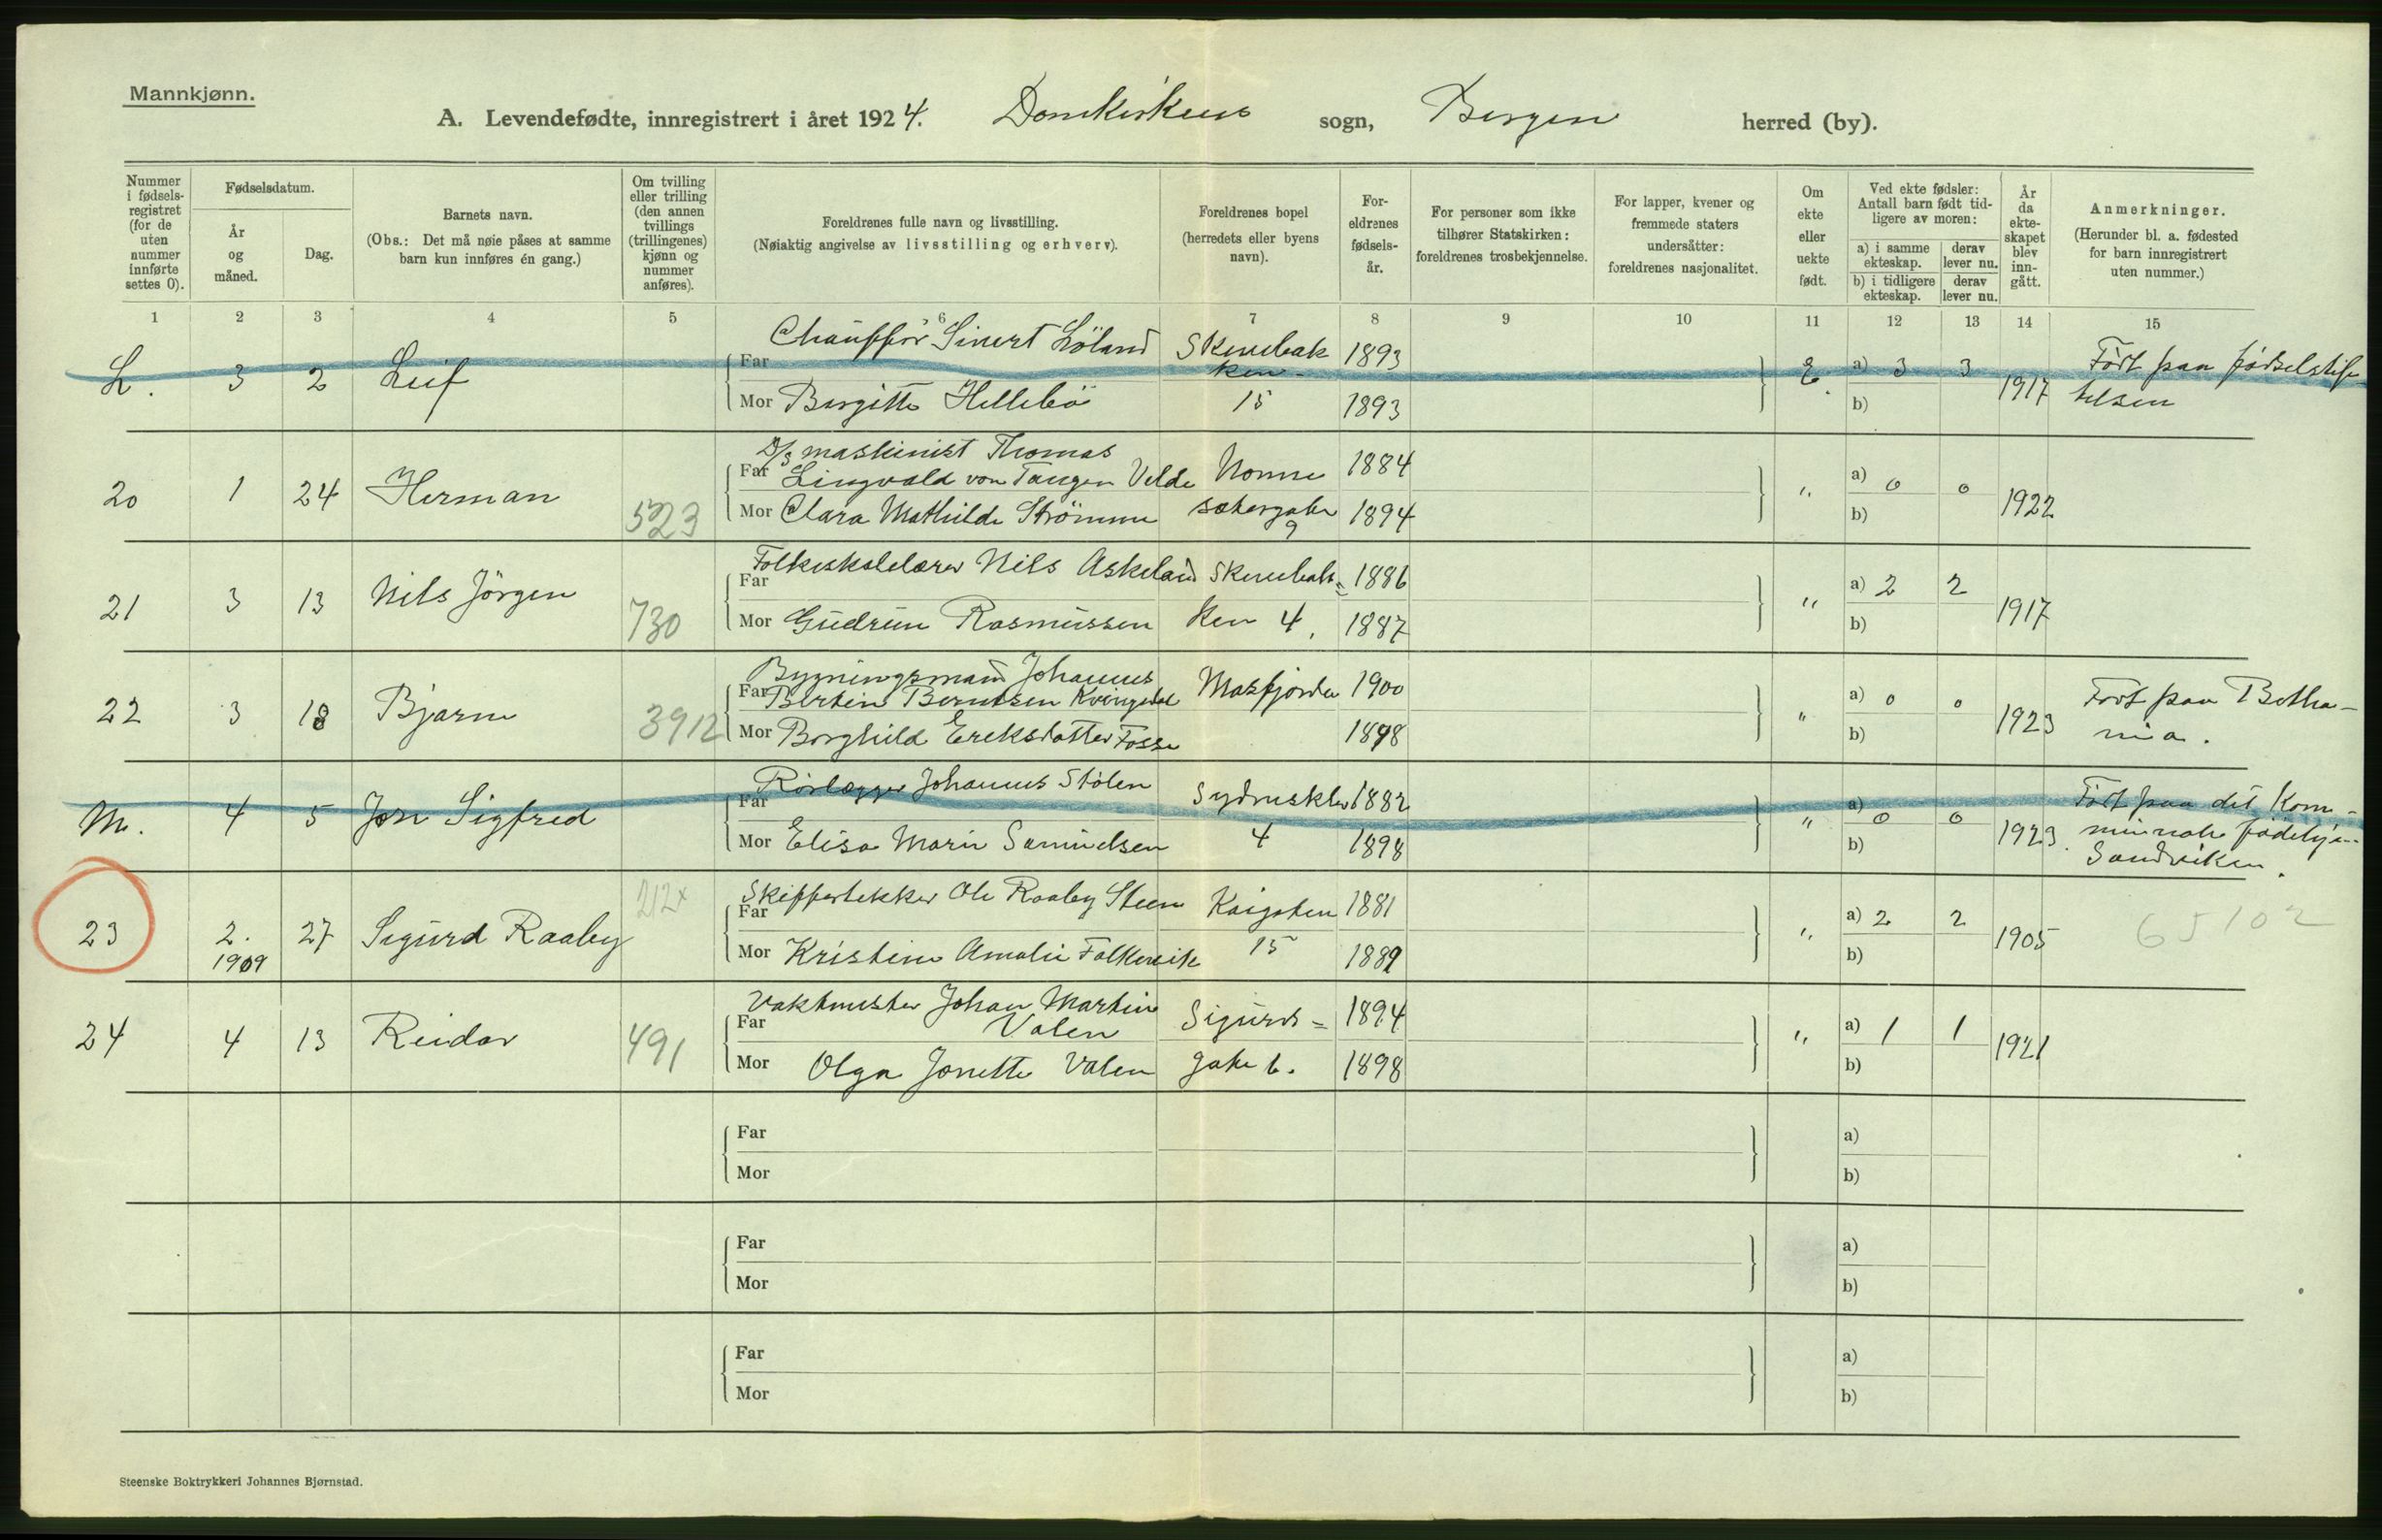 Mannkjønn.
A. Levendefødte, innregistrert i året 1924. Domkirkens sogn, Bergen herred (by).
Nummer i fødselsregistret (for de uten nummer innførte settes 0).
Fødselsdatum.
År og måned.
Dag.
Barnets navn.
(Obs.: Det må nøie påses at samme barn kun innføres én gang.)
Om tvilling eller trilling (den annen tvillings (trillingenes) kjønn og nummer anføres).
Foreldrenes fulle navn og livsstilling.
(Nøiaktig angivelse av livsstilling og erhverv).
Foreldrenes bopel (herredets eller byens navn).
Foreldrenes fødselsår.
For personer som ikke tilhører Statskirken: foreldrenes trosbekjennelse.
For lapper, kvener og fremmede staters undersåtter: foreldrenes nasjonalitet.
Om ekte eller uekte født.
Ved ekte fødsler: Antall barn født tidligere av moren:
a) i samme ekteskap. derav lever nu.
b) i tidligere ekteskap. derav lever nu.
År da ekteskapet blev inngått.
Anmerkninger.
(Herunder bl. a. fødested for barn innregistrert uten nummer.)
1 2 3 4 5 6 7 8 9 10 11 12 13 14 15
L. 3 2 Leif
Chauffør Sivert Löland Skivebak 1893
Far ken-
Mor Bergitte Hellebö 15 1893
E. a) 3 3 1917 Født paa fødselstif
b) telsen
20 1 24 Herman 523
D/S maskinist Thomas
Far Lingvald von Tangen Velde Nonne 1884
Mor Clara Mathilde Strömme sætergaten 9 1894
" a) 0 0 1922
b)
21 3 13 Nils Jörgen 730
Folkeskolelærer Nils Askeland Skivebak= 1886
Far
Mor Gudrun Rasmussen ken 4. 1887
" a) 2 2 1917
b)
22 3 18 Bjarne 3912
Bygningsmand Johannes
Far Bertin Berntsen Kvingedal Masfjorden 1900
Mor Borghild Ereksdatter Fosse 1898
" a) 0 0 1923 Født paa Betha-
b) nia.
M. 4 5 Jon Sigfred
Rørlægger Johannes Stölen Sydnesklev 1882
Far
Mor Elisa Marie Samuelsen 4 1898
" a) 0 0 1923 Født paa det Kom-
b) munale fødehjem
Sandviken.
23 2. 27 Sigurd Raaby 212x
1909
Skipstekker Ole Raaby Steen Kaigaten 1881
Far
Mor Kristine Amalie Falkevik 15 1889
" a) 2 2 1905 65102
b)
24 4 13 Reidar 491
Vaktmester Johan Martin
Far Valen Sigurds= 1894
Mor Olga Jonette Valen gate 6. 1898
" a) 1 1 1921
b)
Far a)
Mor b)
Far a)
Mor b)
Far a)
Mor b)
Steenske Boktrykkeri Johannes Bjørnstad.